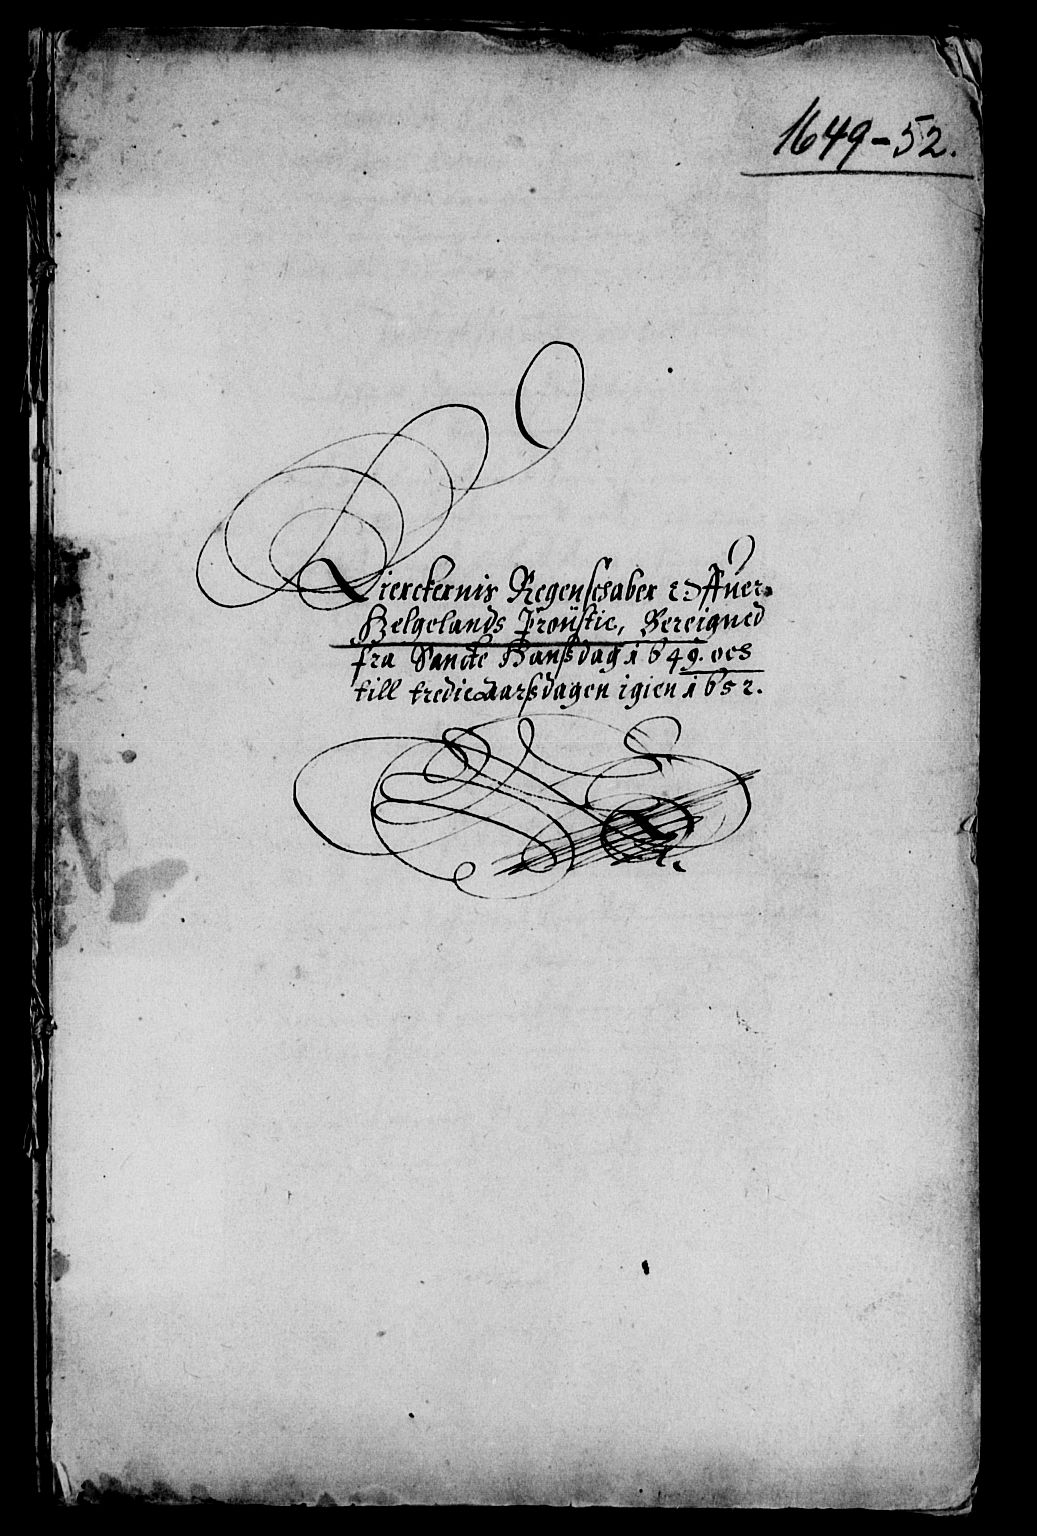 1649-52.
Kierckernis Regenschaber Offuer
Helgelands Proustie, Bereigned
fra Sancte Hanßdag 1649. oc
till tredie aarßdagen igien 1652.